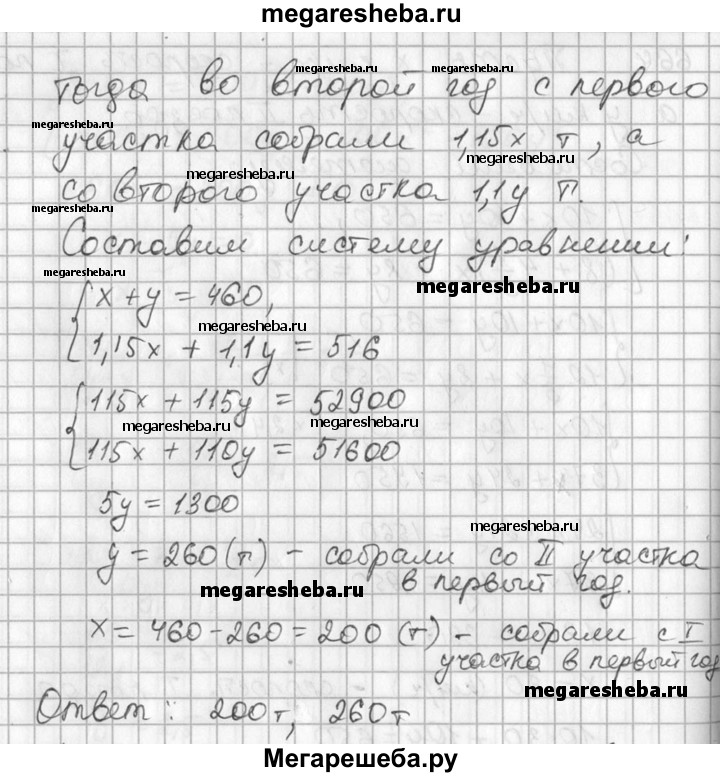 megaresheba.ru
Тогда во второй год с первого
megaresheba.ru megaresheba.ru
megaresheba.ru
участка собрали 1,15x т, а
megaresheba.ru
megaresheba.ru
со второго участка 1,1y т.
megaresheba.ru
Составим систему уравнений:
megaresheba.ru
megaresheba.ru
x + y = 460,
megaresheba.ru
1,15x + 1,1y = 516
115x + 115y = 52900
megaresheba.ru megaresheba.ru
115x + 110y = 51600
5y = 1300
megaresheba.ru
y = 260 (т) - собрали со II участка
в первый год.
megaresheba.ru
x = 460 - 260 = 200 (т) - собрали с I
участка в первый год
megaresheba.ru
Ответ: 200 т, 260 т
Мегарешеба.ру